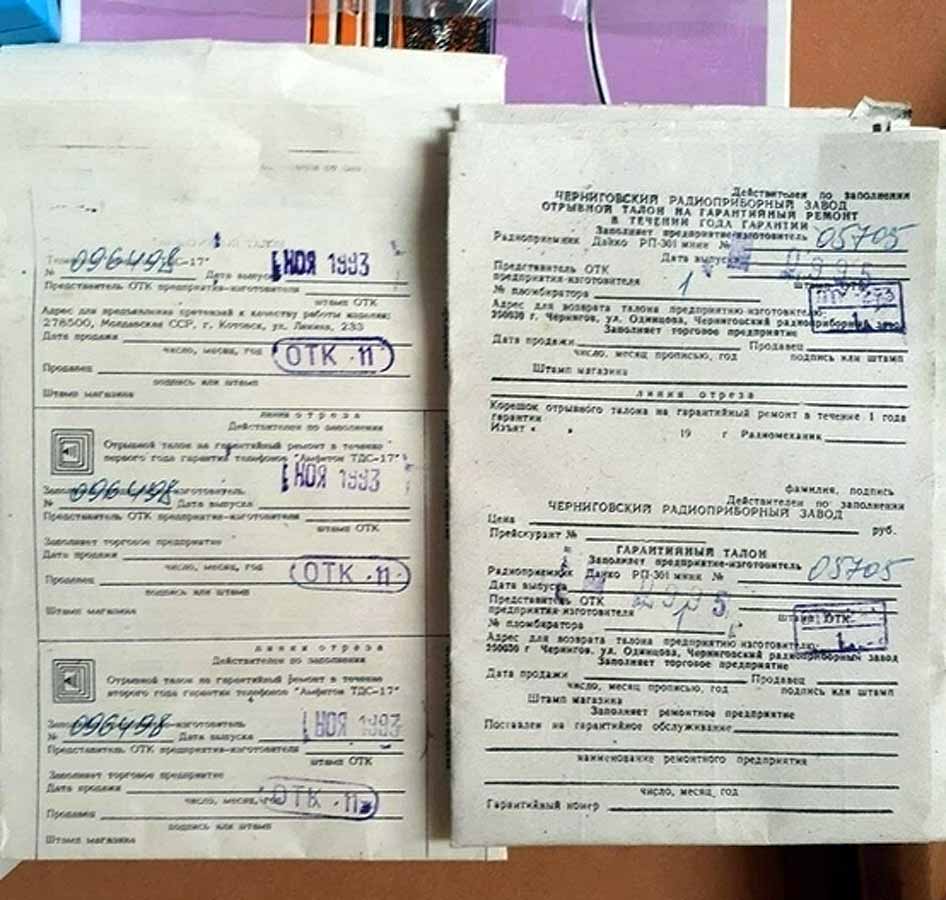 ТДС-17"
№ 096498 Дата выпуска НОЯ 1993
Представитель ОТК предприятия-изготовителя
штамп ОТК
Адрес для предъявления претензий к качеству работы изделия:
278500, Молдавская ССР, г. Котовск, ул. Ленина, 233
Дата продажи
число, месяц, год
ОТК 11
Продавец
подпись или штамп
Штамп магазина
линия отреза
Действителен по заполнении
Отрывной талон на гарантийный ремонт в течение
первого года гарантии телефонов "Амфитон ТДС-17"
НОЯ 1993
Заполняет предприятие-изготовитель
№ 096498 Дата выпуска
Представитель ОТК предприятия-изготовителя
штамп ОТК
Заполняет торговое предприятие
Дата продажи
число, месяц, год
Продавец ОТК 11
подпись или штамп
Штамп магазина
линия отреза
Действителен по заполнении
Отрывной талон на гарантийный ремонт в течение
второго года гарантии телефонов "Амфитон ТДС-17"
Заполняет предприятие-изготовитель
№ 096498 Дата выпуска НОЯ 1993
Представитель ОТК предприятия-изготовителя
штамп ОТК
Заполняет торговое предприятие
Дата продажи
число, месяц, год ОТК 11
Продавец
подпись или штамп
Штамп магазина
Действителен по заполнении
ЧЕРНИГОВСКИЙ РАДИОПРИБОРНЫЙ ЗАВОД
ОТРЫВНОЙ ТАЛОН НА ГАРАНТИЙНЫЙ РЕМОНТ
В ТЕЧЕНИИ ГОДА ГАРАНТИИ
Заполняет предприятие-изготовитель
Радиоприемник Дайко РП-301 мини № 05705
Дата выпуска
Представитель ОТК
предприятия-изготовителя
№ пломбиратора 1
Адрес для возврата талона предприятию-изготовителю:
250030 г. Чернигов, ул. Одинцова, Черниговский радиоприборный завод
Заполняет торговое предприятие
Дата продажи Продавец
число, месяц прописью, год подпись или штамп
Штамп магазина
линия отреза
Корешок отрывного талона на гарантийный ремонт в течение 1 года
гарантии
Изъят « » 19 г Радиомеханик
фамилия, подпись
Действителен по заполнении
ЧЕРНИГОВСКИЙ РАДИОПРИБОРНЫЙ ЗАВОД
Цена руб.
Прейскурант №
ГАРАНТИЙНЫЙ ТАЛОН
Заполняет предприятие-изготовитель
Радиоприемник Дайко РП-301 мини № 05705
Дата выпуска
Представитель ОТК
предприятия-изготовителя штамп ОТК
№ пломбиратора 1
Адрес для возврата талона предприятию изготовителю:
250030 г Чернигов, ул. Одинцова, Черниговский радиоприборный завод
Заполняет торговое предприятие
Дата продажи Продавец
число, месяц прописью, год подпись или штамп
Штамп магазина
Заполняет ремонтное предприятие
Поставлен на гарантийное обслуживание
наименование ремонтного предприятия
число, месяц, год
Гарантийный номер